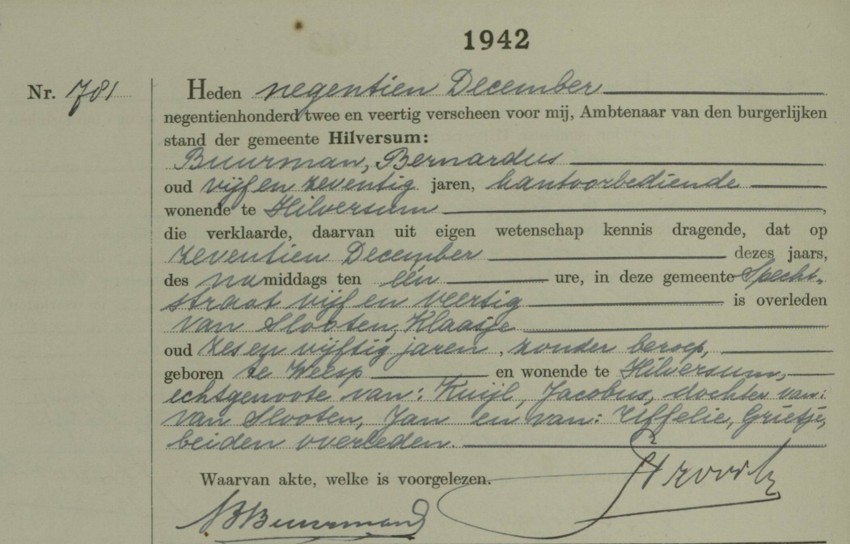 1942
Nr. 781
Heden negentien December
negentienhonderd twee en veertig verscheen voor mij, Ambtenaar van den burgerlijken
stand der gemeente Hilversum:
Buurman, Bernardus
oud vijf en zeventig jaren, kantoorbediende
wonende te Hilversum,
die verklaarde, daarvan uit eigen wetenschap kennis dragende, dat op
zeventien December dezes jaars,
des namiddags ten één ure, in deze gemeente Specht-
straat vijf en veertig is overleden
van Slooten, Klaasje
oud zes en vijftig jaren, zonder beroep,
geboren te Weesp en wonende te Hilversum,
echtgenoote van: Kuijl, Jacobus, dochter van:
van Slooten, Jan en van: Ziffelie, Grietje,
beiden overleden.
Waarvan akte, welke is voorgelezen.
Buurman